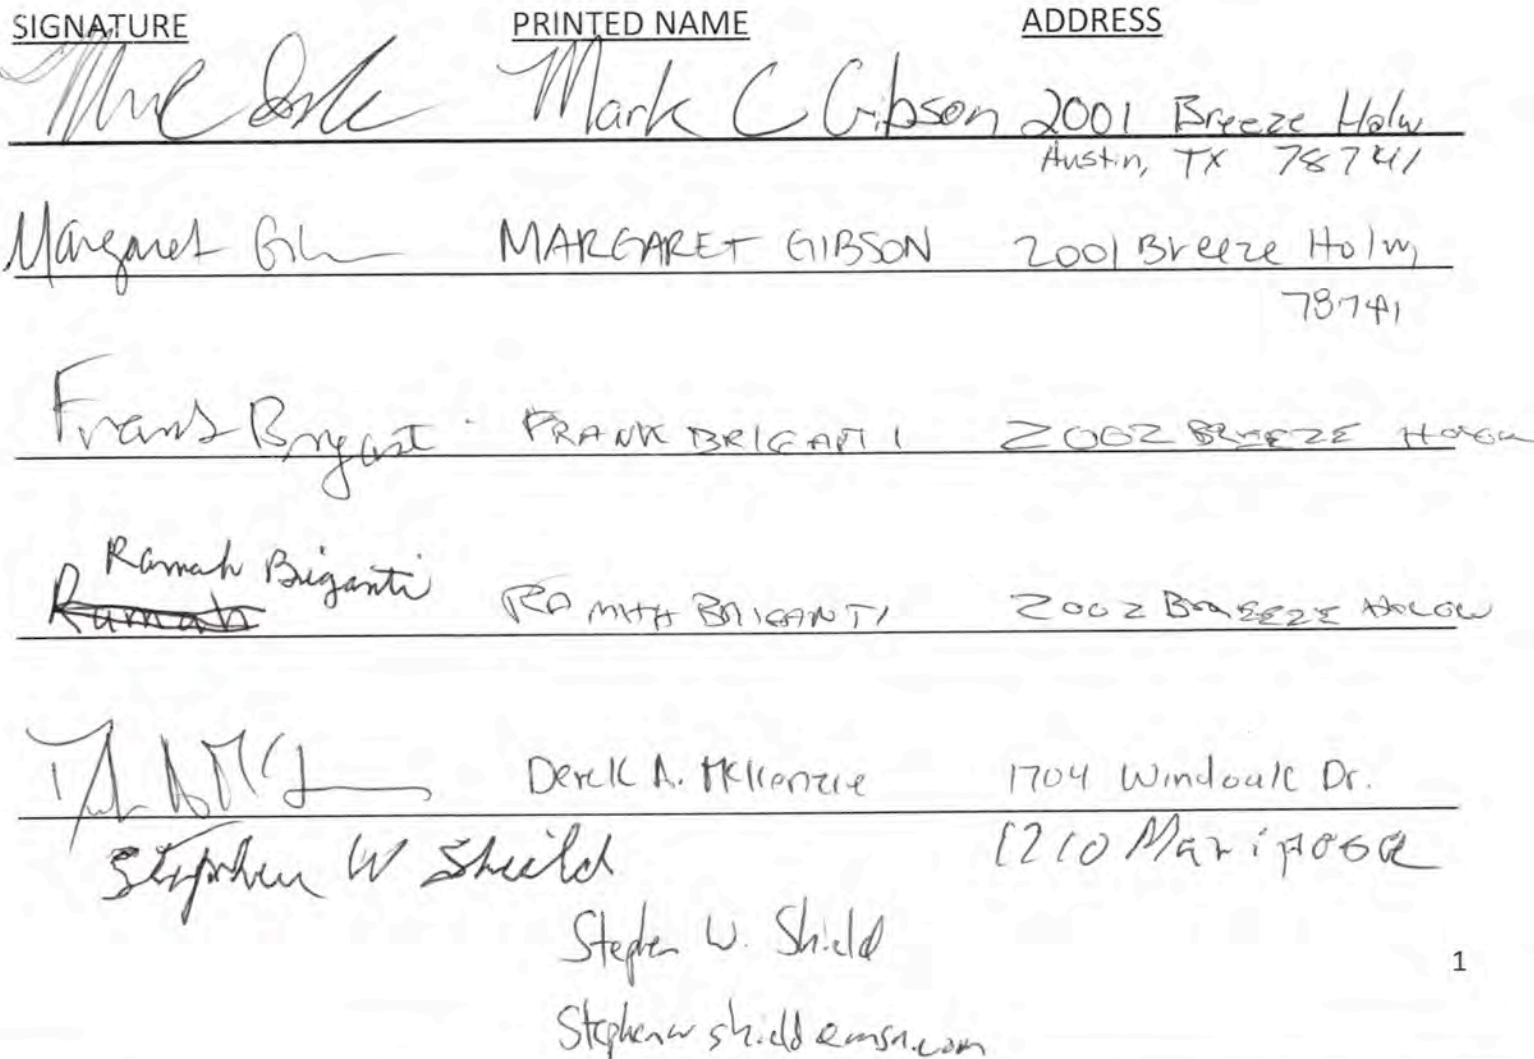 SIGNATURE PRINTED NAME ADDRESS
Mark C Gibson 2001 Breeze Holw
Austin, TX 78741
Margaret MARGARET GIBSON 2001 Breeze Holw
78741
Frank FRANK BRIGANTI 2002 BREEZE
Ramah Briganti
Ramah RAMAH BRIGANTI 2002 BREEZE HOLLOW
Derek A. McKenzie 1704 Windoak Dr.
Stephen W Shield 1210 Mariposa
Stephen W. Shield
1
Stephenwshield@msn.com